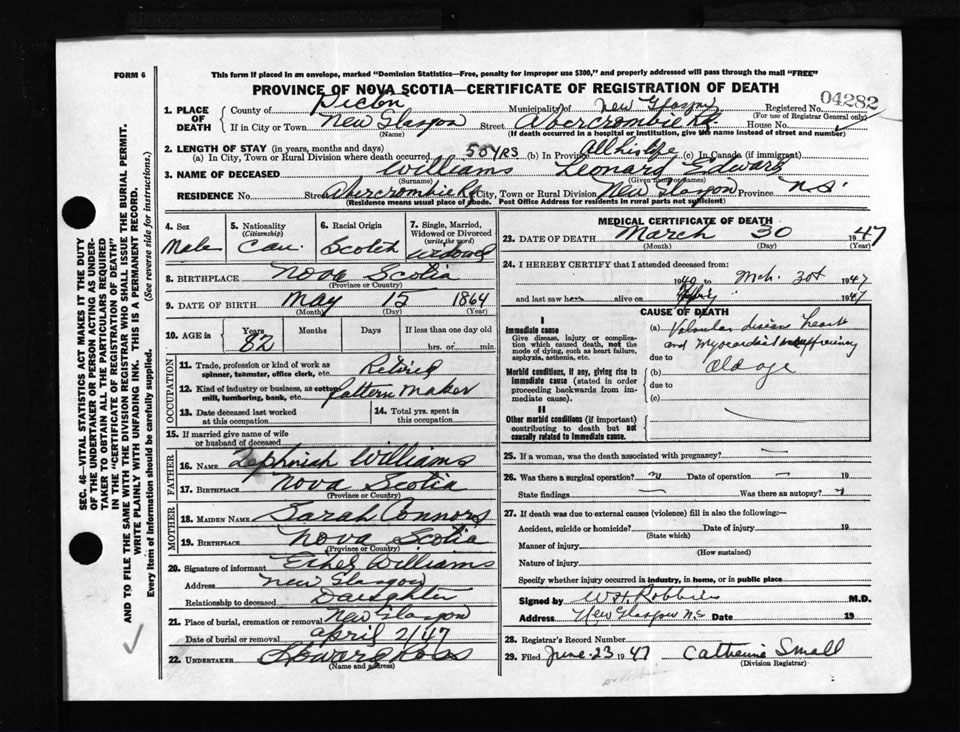 FORM 6
This form if placed in an envelope, marked "Dominion Statistics—Free, penalty for improper use $300," and properly addressed will pass through the mail "FREE"
PROVINCE OF NOVA SCOTIA—CERTIFICATE OF REGISTRATION OF DEATH
1. PLACE OF DEATH County of Pictou Municipality of New Glasgow Registered No. 04282
(For use of Registrar General only)
If in City or Town New Glasgow Street Abercrombie Rd. House No.
(Name) (If death occurred in a hospital or institution, give the name instead of street and number)
2. LENGTH OF STAY (in years, months and days)
(a) In City, Town or Rural Division where death occurred 50 yrs (b) In Province All his life (c) In Canada (if immigrant)
3. NAME OF DECEASED Williams Leonard Edward
(Surname) (Given Names)
RESIDENCE No. Street Abercrombie Rd City, Town or Rural Division New Glasgow Province N.S.
(Residence means usual place of abode. Post Office Address for residents in rural parts not sufficient)
4. Sex
Male
5. Nationality (Citizenship)
Can.
6. Racial Origin
Scotch
7. Single, Married, Widowed or Divorced (write the word)
Widowed
8. BIRTHPLACE Nova Scotia
(Province or Country)
9. DATE OF BIRTH May 15 1864
(Month) (Day) (Year)
10. AGE in Years Months Days If less than one day old
82 hrs. or min.
OCCUPATION
11. Trade, profession or kind of work as spinner, teamster, office clerk, etc. Retired
12. Kind of industry or business, as cotton mill, lumbering, bank, etc. Pattern Maker
13. Date deceased last worked at this occupation
14. Total yrs. spent in this occupation
15. If married give name of wife or husband of deceased
FATHER
16. NAME Zephniah Williams
17. BIRTHPLACE Nova Scotia
(Province or Country)
MOTHER
18. MAIDEN NAME Sarah Connors
19. BIRTHPLACE Nova Scotia
(Province or Country)
20. Signature of informant Ethel Williams
Address New Glasgow
Relationship to deceased Daughter
21. Place of burial, cremation or removal New Glasgow
Date of burial or removal April 2/47
22. UNDERTAKER
(Name and address)
MEDICAL CERTIFICATE OF DEATH
23. DATE OF DEATH March 30 1947
(Month) (Day) (Year)
24. I HEREBY CERTIFY that I attended deceased from:
1940 to Mch. 30th 1947
and last saw h alive on 1947
CAUSE OF DEATH
I
Immediate cause
Give disease, injury or complication which caused death, not the mode of dying, such as heart failure, asphyxia, asthenia, etc.
(a) Valvular disease heart
and Myocardial insufficiency
due to
Morbid conditions, if any, giving rise to immediate cause (stated in order proceeding backwards from immediate cause).
(b) Old age
due to
(c)
II
Other morbid conditions (if important) contributing to death but not causally related to immediate cause.
25. If a woman, was the death associated with pregnancy? —
26. Was there a surgical operation? Date of operation — 19
State findings — Was there an autopsy?
27. If death was due to external causes (violence) fill in also the following:—
Accident, suicide or homicide? Date of injury 19
(State which)
Manner of injury
(How sustained)
Nature of injury
Specify whether injury occurred in industry, in home, or in public place
Signed by W.H. Robbins M.D.
Address New Glasgow N.S Date 19
28. Registrar's Record Number
29. Filed June 23 1947 Catherine Small
(Division Registrar)
SEC. 46—VITAL STATISTICS ACT MAKES IT THE DUTY
OF THE UNDERTAKER OR PERSON ACTING AS UNDER-
TAKER TO OBTAIN ALL THE PARTICULARS REQUIRED
IN THE "CERTIFICATE OF REGISTRATION OF DEATH"
AND TO FILE THE SAME WITH THE DIVISION REGISTRAR WHO SHALL ISSUE THE BURIAL PERMIT.
WRITE PLAINLY WITH UNFADING INK. THIS IS A PERMANENT RECORD.
Every item of Information should be carefully supplied. (See reverse side for instructions.)